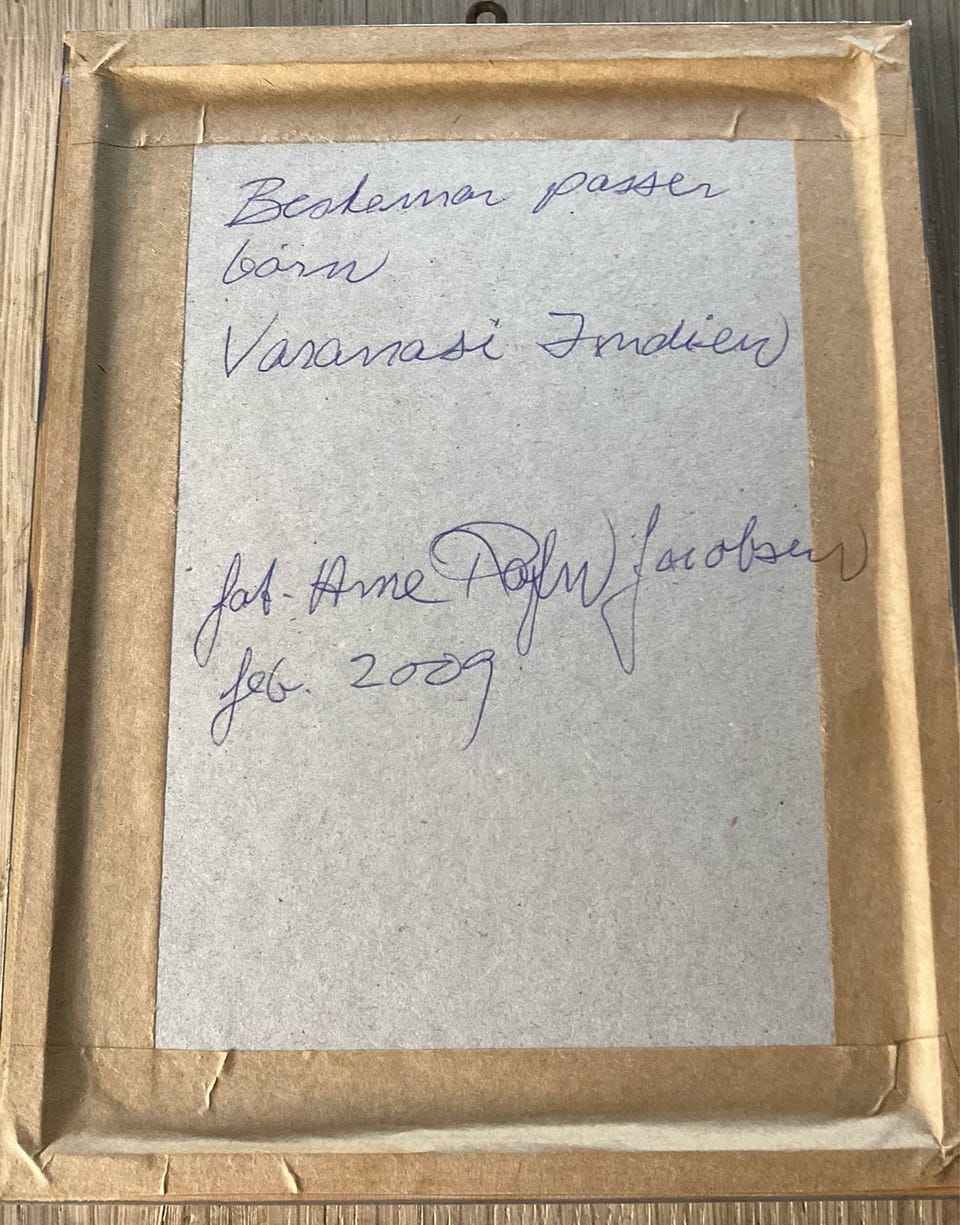 Bestemor passer
børn
Varanasi Indien
fot. Arne Jacobsen
feb. 2009